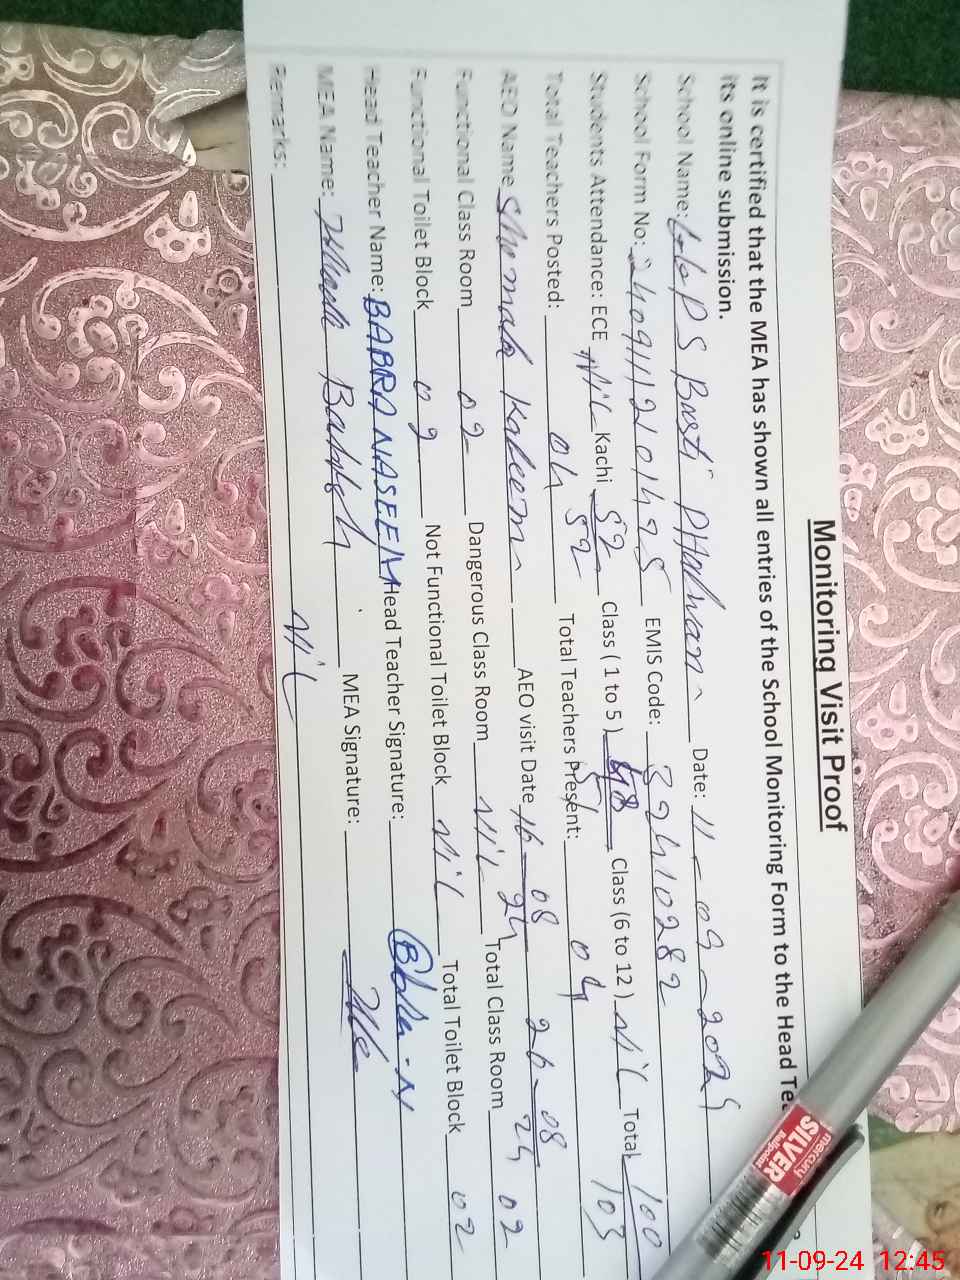 Monitoring Visit Proof
It is certified that the MEA has shown all entries of the School Monitoring Form to the Head Te
its online submission.
School Name: GGPS Basti PHalwan Date: 11-09-2024
School Form No: EMIS Code: 32410282
Students Attendance: ECE NiL Kachi 52 Class ( 1 to 5 ) 48 Class (6 to 12) NiL Total 100
52 51 103
Total Teachers Posted: 04 Total Teachers Present: 04
AEO Name Kaleem AEO visit Date 16-08-24 26-08-24
Functional Class Room 02 Dangerous Class Room NiL Total Class Room 02
Functional Toilet Block 02 Not Functional Toilet Block NiL Total Toilet Block 02
Head Teacher Name: BABRA NASEEM Head Teacher Signature:
MEA Name: MEA Signature:
Remarks: NiL
mercury
SILVER
ballpoint
11-09-24 12:45